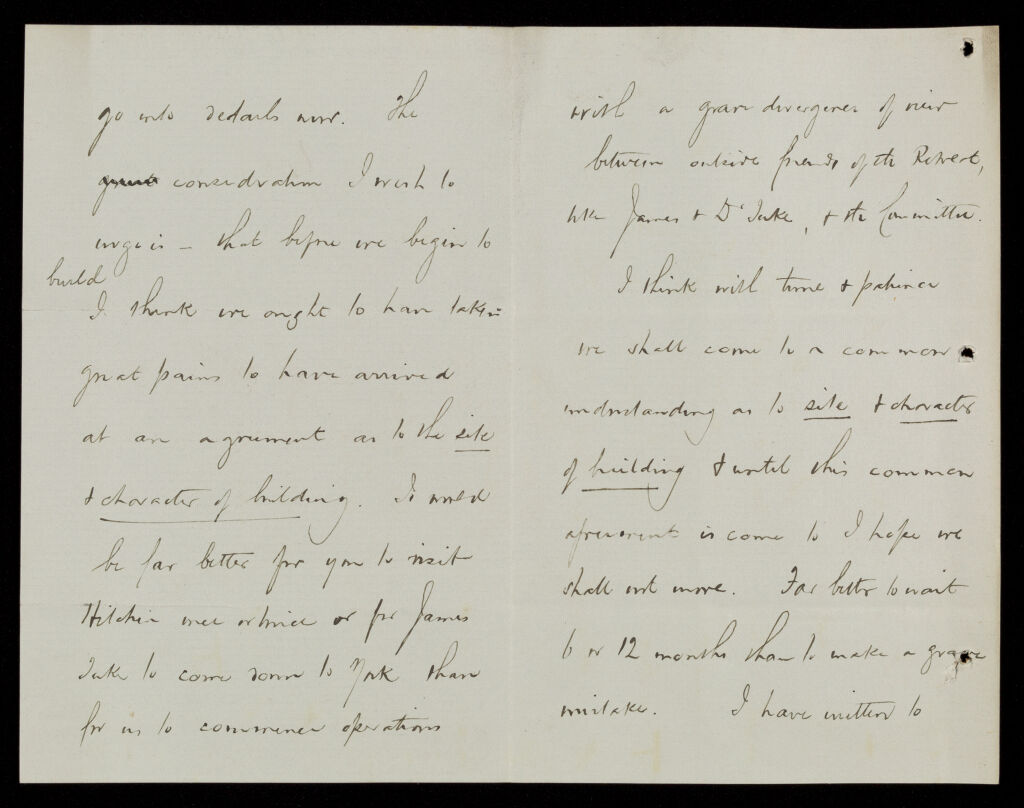 go into details now. The
great consideration I wish to
urge is - that before we begin to
build
I think we ought to have taken
great pains to have arrived
at an agreement as to the site
& character of building. It would
be far better for you to visit
Hitchin once or twice or for James
Tuke to come down to York than
for us to commence operations
with a grave divergence of view
between outside friends of the Retreat,
like James & Dr Tuke, & the Committee.
I think with time & patience
we shall come to a common
understanding as to site & character
of building & until this common
agreement is come to I hope we
shall not move. Far better to wait
6 or 12 months than to make a grave
mistake. I have written to